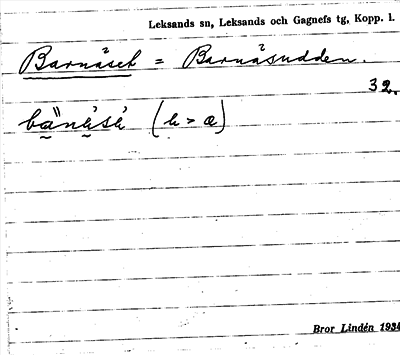 Leksands sn, Leksands och Gagnefs tg, Kopp. l.
Barnåset = Barnåsudden.
32.
Bror Lindén 1934